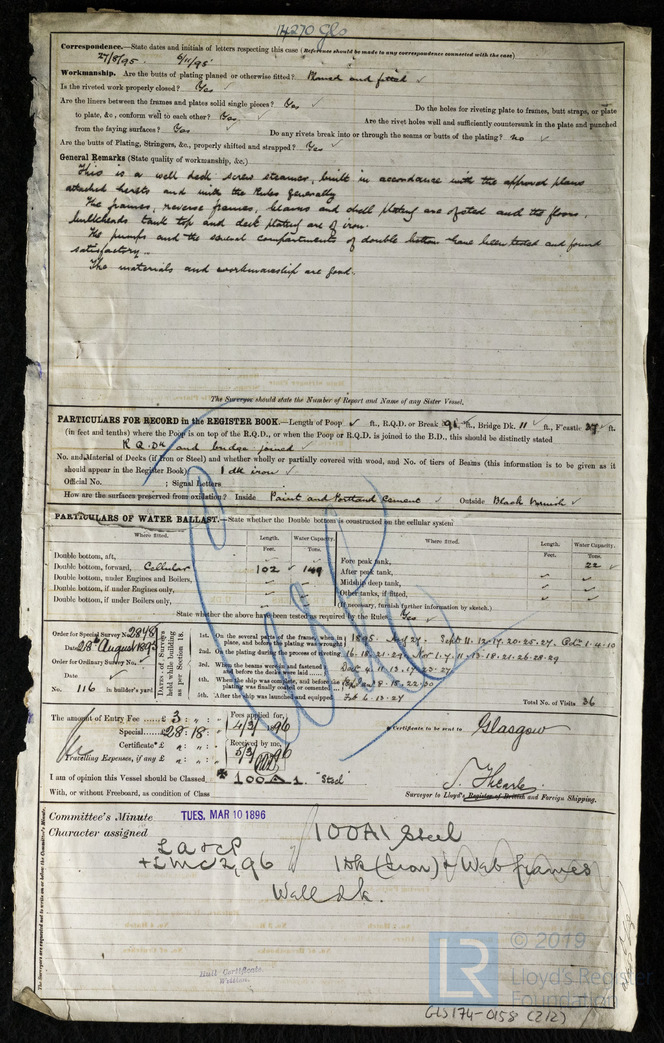 14270 Glo
Correspondence.—State dates and initials of letters respecting this case (Reference should be made to any correspondence connected with the case)
27/8/95. 6/11/95
Workmanship. Are the butts of plating planed or otherwise fitted? Planed and fitted ✓
Is the riveted work properly closed? Yes ✓
Are the liners between the frames and plates solid single pieces? Yes ✓ Do the holes for riveting plate to frames, butt straps, or plate
to plate, &c., conform well to each other? Yes ✓ Are the rivet holes well and sufficiently countersunk in the plate and punched
from the faying surfaces? Yes ✓ Do any rivets break into or through the seams or butts of the plating? no ✓
Are the butts of Plating, Stringers, &c., properly shifted and strapped? Yes ✓
General Remarks (State quality of workmanship, &c.)
This is a well deck screw steamer, built in accordance with the approved plans
attached hereto and with the Rules generally
The frames, reverse frames, beams and shell plating are of steel and the floors,
bulkheads tank top and deck plating are of iron.
The pumps and the several compartments of double bottom have been tested and found
satisfactory.
The materials and workmanship are good.
The Surveyor should state the Number of Report and Name of any Sister Vessel.
PARTICULARS FOR RECORD in the REGISTER BOOK.—Length of Poop ✓ ft., R.Q.D. or Break 91 ft., Bridge Dk. 11 ✓ ft., F'castle 27 ✓ ft.
(in feet and tenths) where the Poop is on top of the R.Q.D., or when the Poop or R.Q.D. is joined to the B.D., this should be distinctly stated
R.Q.Dk and bridge joined ✓
No. and Material of Decks (if Iron or Steel) and whether wholly or partially covered with wood, and No. of tiers of Beams (this information is to be given as it
should appear in the Register Book) 1 dk iron ✓
Official No. ; Signal Letters
How are the surfaces preserved from oxidation? Inside Paint and Portland Cement ✓ Outside Black Varnish ✓
PARTICULARS OF WATER BALLAST.—State whether the Double bottom is constructed on the cellular system
Where fitted. Length. Water Capacity. Where fitted. Length. Water Capacity.
Feet. Tons. Feet. Tons.
Double bottom, aft, Fore peak tank, 22 ✓
Double bottom, forward, Cellular 102 ✓ 149 After peak tank,
Double bottom, under Engines and Boilers, Midship deep tank,
Double bottom, if under Engines only, Other tanks, if fitted,
Double bottom, if under Boilers only, (If necessary, furnish further information by sketch.)
State whether the above have been tested as required by the Rules Yes ✓
Order for Special Survey No. 2848
Date 28th August 1895
Order for Ordinary Survey No. ✓
Date ✓
No. 116 in builder's yard
Dates of Surveys held while building as per Section 18.
1st. On the several parts of the frame, when in place, and before the plating was wrought 1895. Aug 27. Sept 11.12.17.20.25.27. Oct. 1.4.10
2nd. On the plating during the process of riveting 16.18.21.29 Nov 1.7.11.13.18.21.26.28.29
3rd. When the beams were in and fastened and before the decks were laid Dec 4.11.13.17.23.27
4th. When the ship was complete, and before the plating was finally coated or cemented Jan 8.15.22.30
5th. After the ship was launched and equipped Feb 6.13.27
Total No. of Visits 36
The amount of Entry Fee £ 3 : " : "
Special £ 28 : 18 : "
Certificate £ " : " : "
Travelling Expenses, if any £ " : " : "
Fees applied for,
4/3/1896
Received by me,
5/3/96
Certificate to be sent to Glasgow
I am of opinion this Vessel should be Classed 100 A 1. "Steel"
With, or without Freeboard, as condition of Class
Surveyor to Lloyd's Register of British and Foreign Shipping.
Committee's Minute TUES. MAR 10 1896
Character assigned 100A1 Steel
LA & CP
+LMC 2,96 1 Dk (Iron) & Web frames
Well dk.
The Surveyors are requested not to write on or below the Committee's Minute.
Hull Certificate
Written.
LR © 2019
Lloyd's Register
Foundation
GLS174-0158 (2/2)